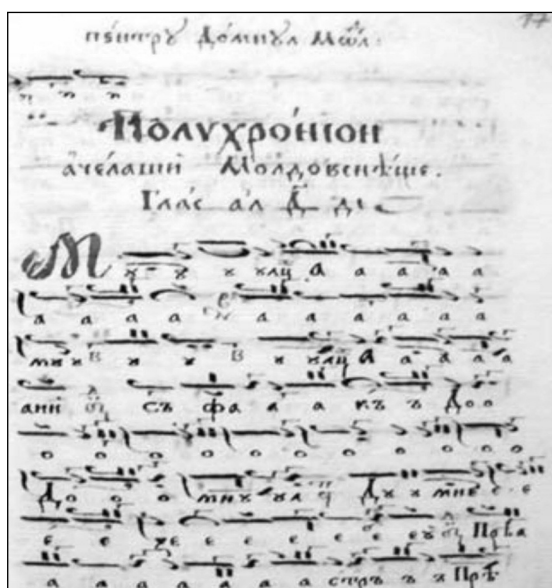 17
пентрꙋ До́мнꙋл Мѡл.
и и и
Полѵхро́нїон
аче́лаши Молдовенѣ́ще.
Глас ал Д҃ ди
М ꙋ ꙋ ꙋ ꙋлц А а а а а
а а а а а а а а а а
мꙋ ꙋ ꙋ ꙋ ꙋ ꙋлц А а а ла
ани ши съ фа а а къ До о
о о о о о о о о о о
До о о мнꙋ ꙋл ши Дꙋ ꙋ мне е е
е е зе е е е е еꙋ ши Прѣа
а а а а а а стръ ъ ъ Прѣ